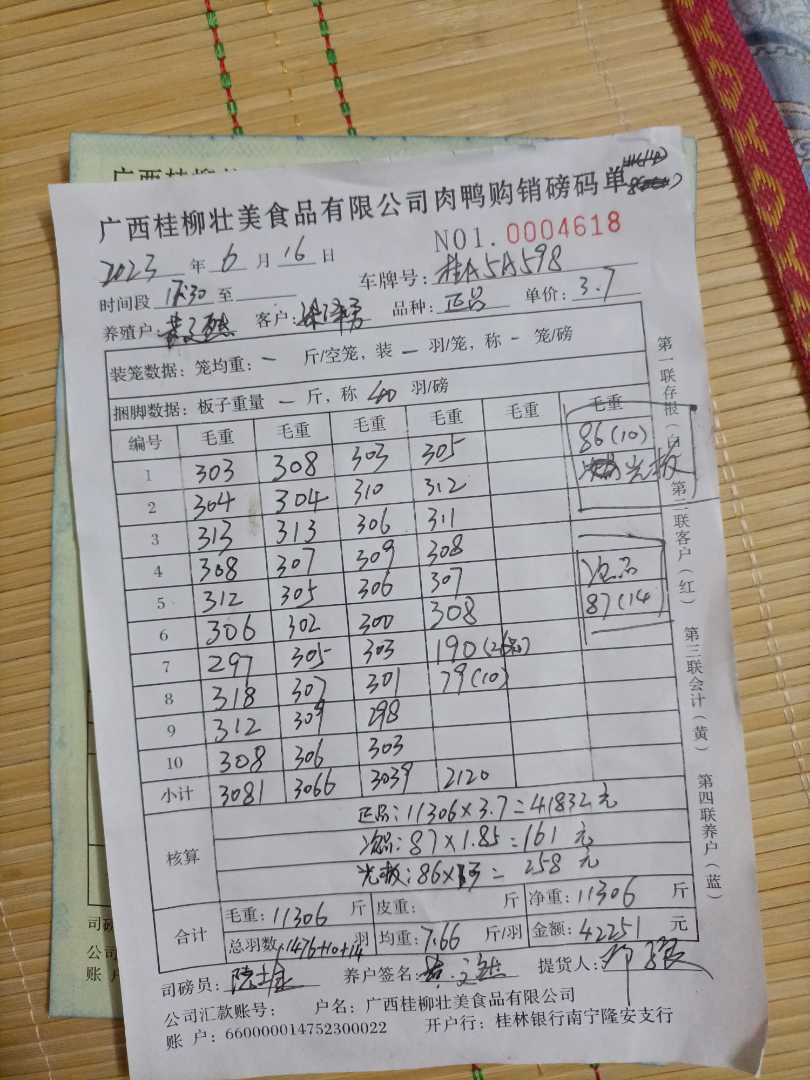 广西桂柳壮
广西桂柳壮美食品有限公司肉鸭购销磅码单
NO1.0004618
2023年6月16日
车牌号:桂A5A598
时间段 至
养殖户: 客户: 品种:正品 单价:3.7
装笼数据:笼均重:- 斤/空笼,装 - 羽/笼,称 - 笼/磅
捆脚数据:板子重量 - 斤,称 40 羽/磅
编号 毛重 毛重 毛重 毛重 毛重 毛重
1 303 308 303 305 86(10)
2 304 304 310 312 光板
3 313 313 306 311
4 308 307 309 308 次品
5 312 305 306 307 87(14)
6 306 302 300 308
7 297 305 303 190(26只)
8 318 307 301 79(10)
9 312 309 298
10 308 306 303
小计 3081 3066 3039 2120
核算
正品:11306×3.7=41832元
次品:87×1.85=161元
光板:86×3=258元
合计
毛重:11306斤 皮重: 斤 净重:11306斤
总羽数:1476+10+14羽 均重:7.66斤/羽 金额:42251元
司磅员: 养户签名: 提货人:
公司汇款账号: 户名:广西桂柳壮美食品有限公司
账 户:660000014752300022 开户行:桂林银行南宁隆安支行
第一联存报(白) 第二联客户(红) 第三联会计(黄) 第四联养户(蓝)
司磅
公司
账 户